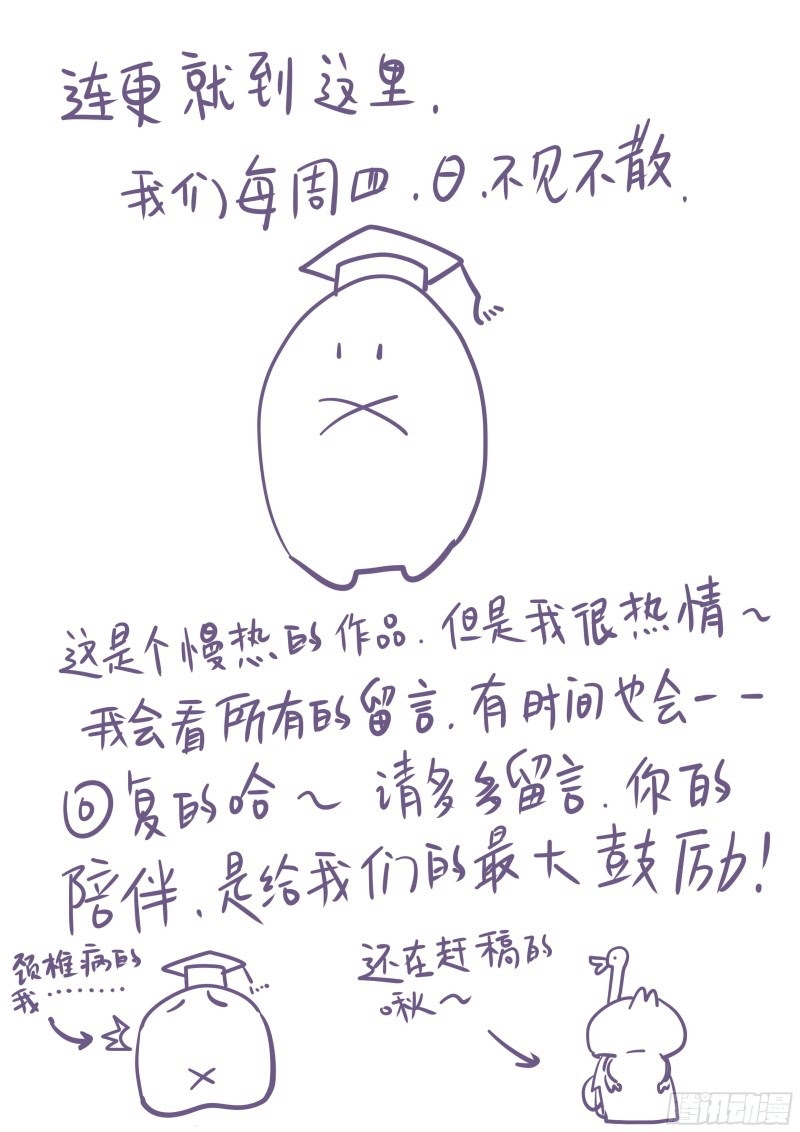 连更就到这里.
我们每周四.日.不见不散.
这是个慢热的作品.但是我很热情~
我会看所有的留言.有时间也会一一
回复的哈~ 请多多留言.你的
陪伴.是给我们的最大鼓励!
颈椎病的
我········
还在赶稿的
啾~
腾讯动漫